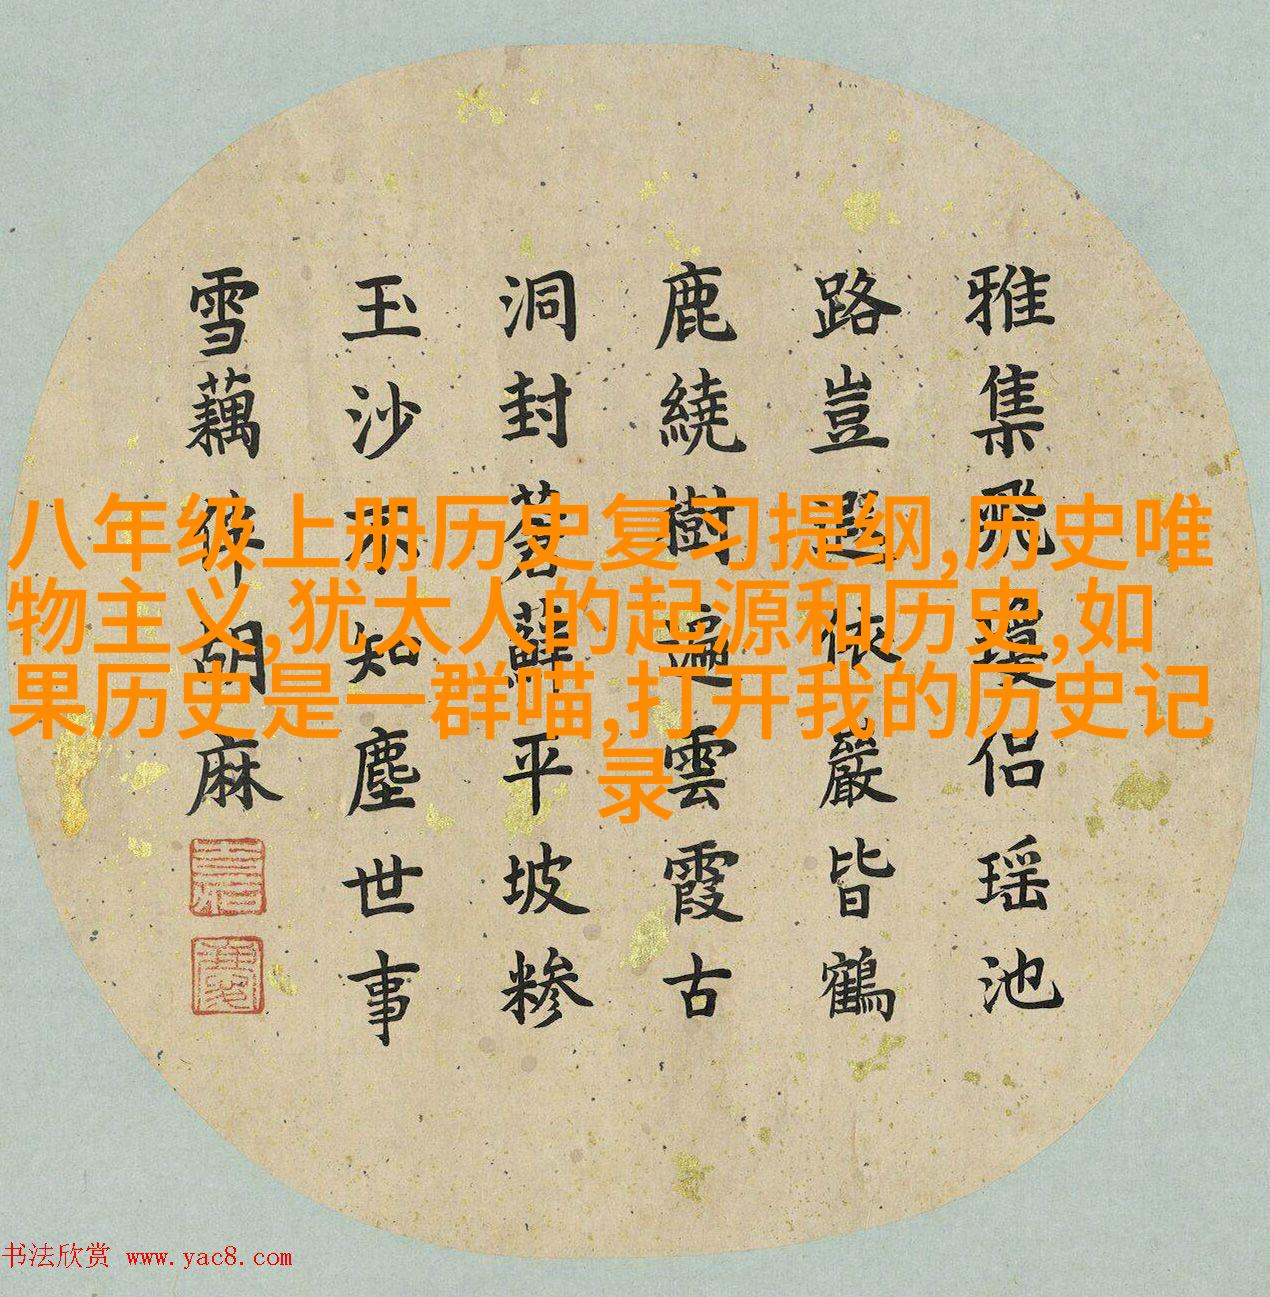 八年级上册历史复习提纲,历史唯
物主义,犹太人的起源和历史,如
果历史是一群喵,打开我的历史记
录
雅集飛瓊侶瑶池
路豈遐依巖皆鶴
鹿繞樹遍雲霞古
洞封蒼蘚平坡糝
玉沙不知塵世事
雪藕伴胡麻
书法欣赏 www.yac8.com